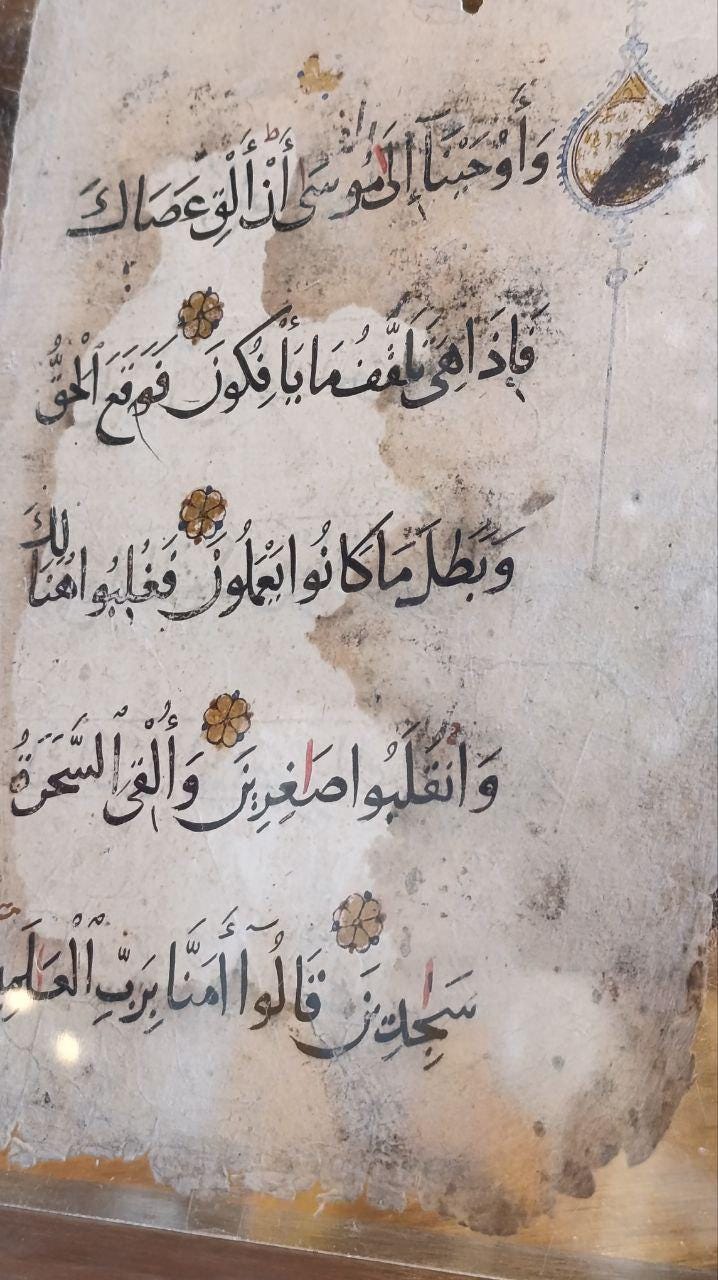 وَأَوْحَيْنَآ إِلَىٰ مُوسَىٰ أَنْ أَلْقِ عَصَاكَ
فَإِذَا هِيَ تَلَقَّفُ مَا يَأْفِكُونَ فَوَقَعَ ٱلْحَقُّ
وَبَطَلَ مَا كَانُوا يَعْمَلُونَ فَغُلِبُوا هُنَالِكَ
وَٱنقَلَبُوا صَٰغِرِينَ وَأُلْقِىَ ٱلسَّحَرَةُ
سَٰجِدِينَ قَالُوٓا ءَامَنَّا بِرَبِّ ٱلْعَٰلَمِ